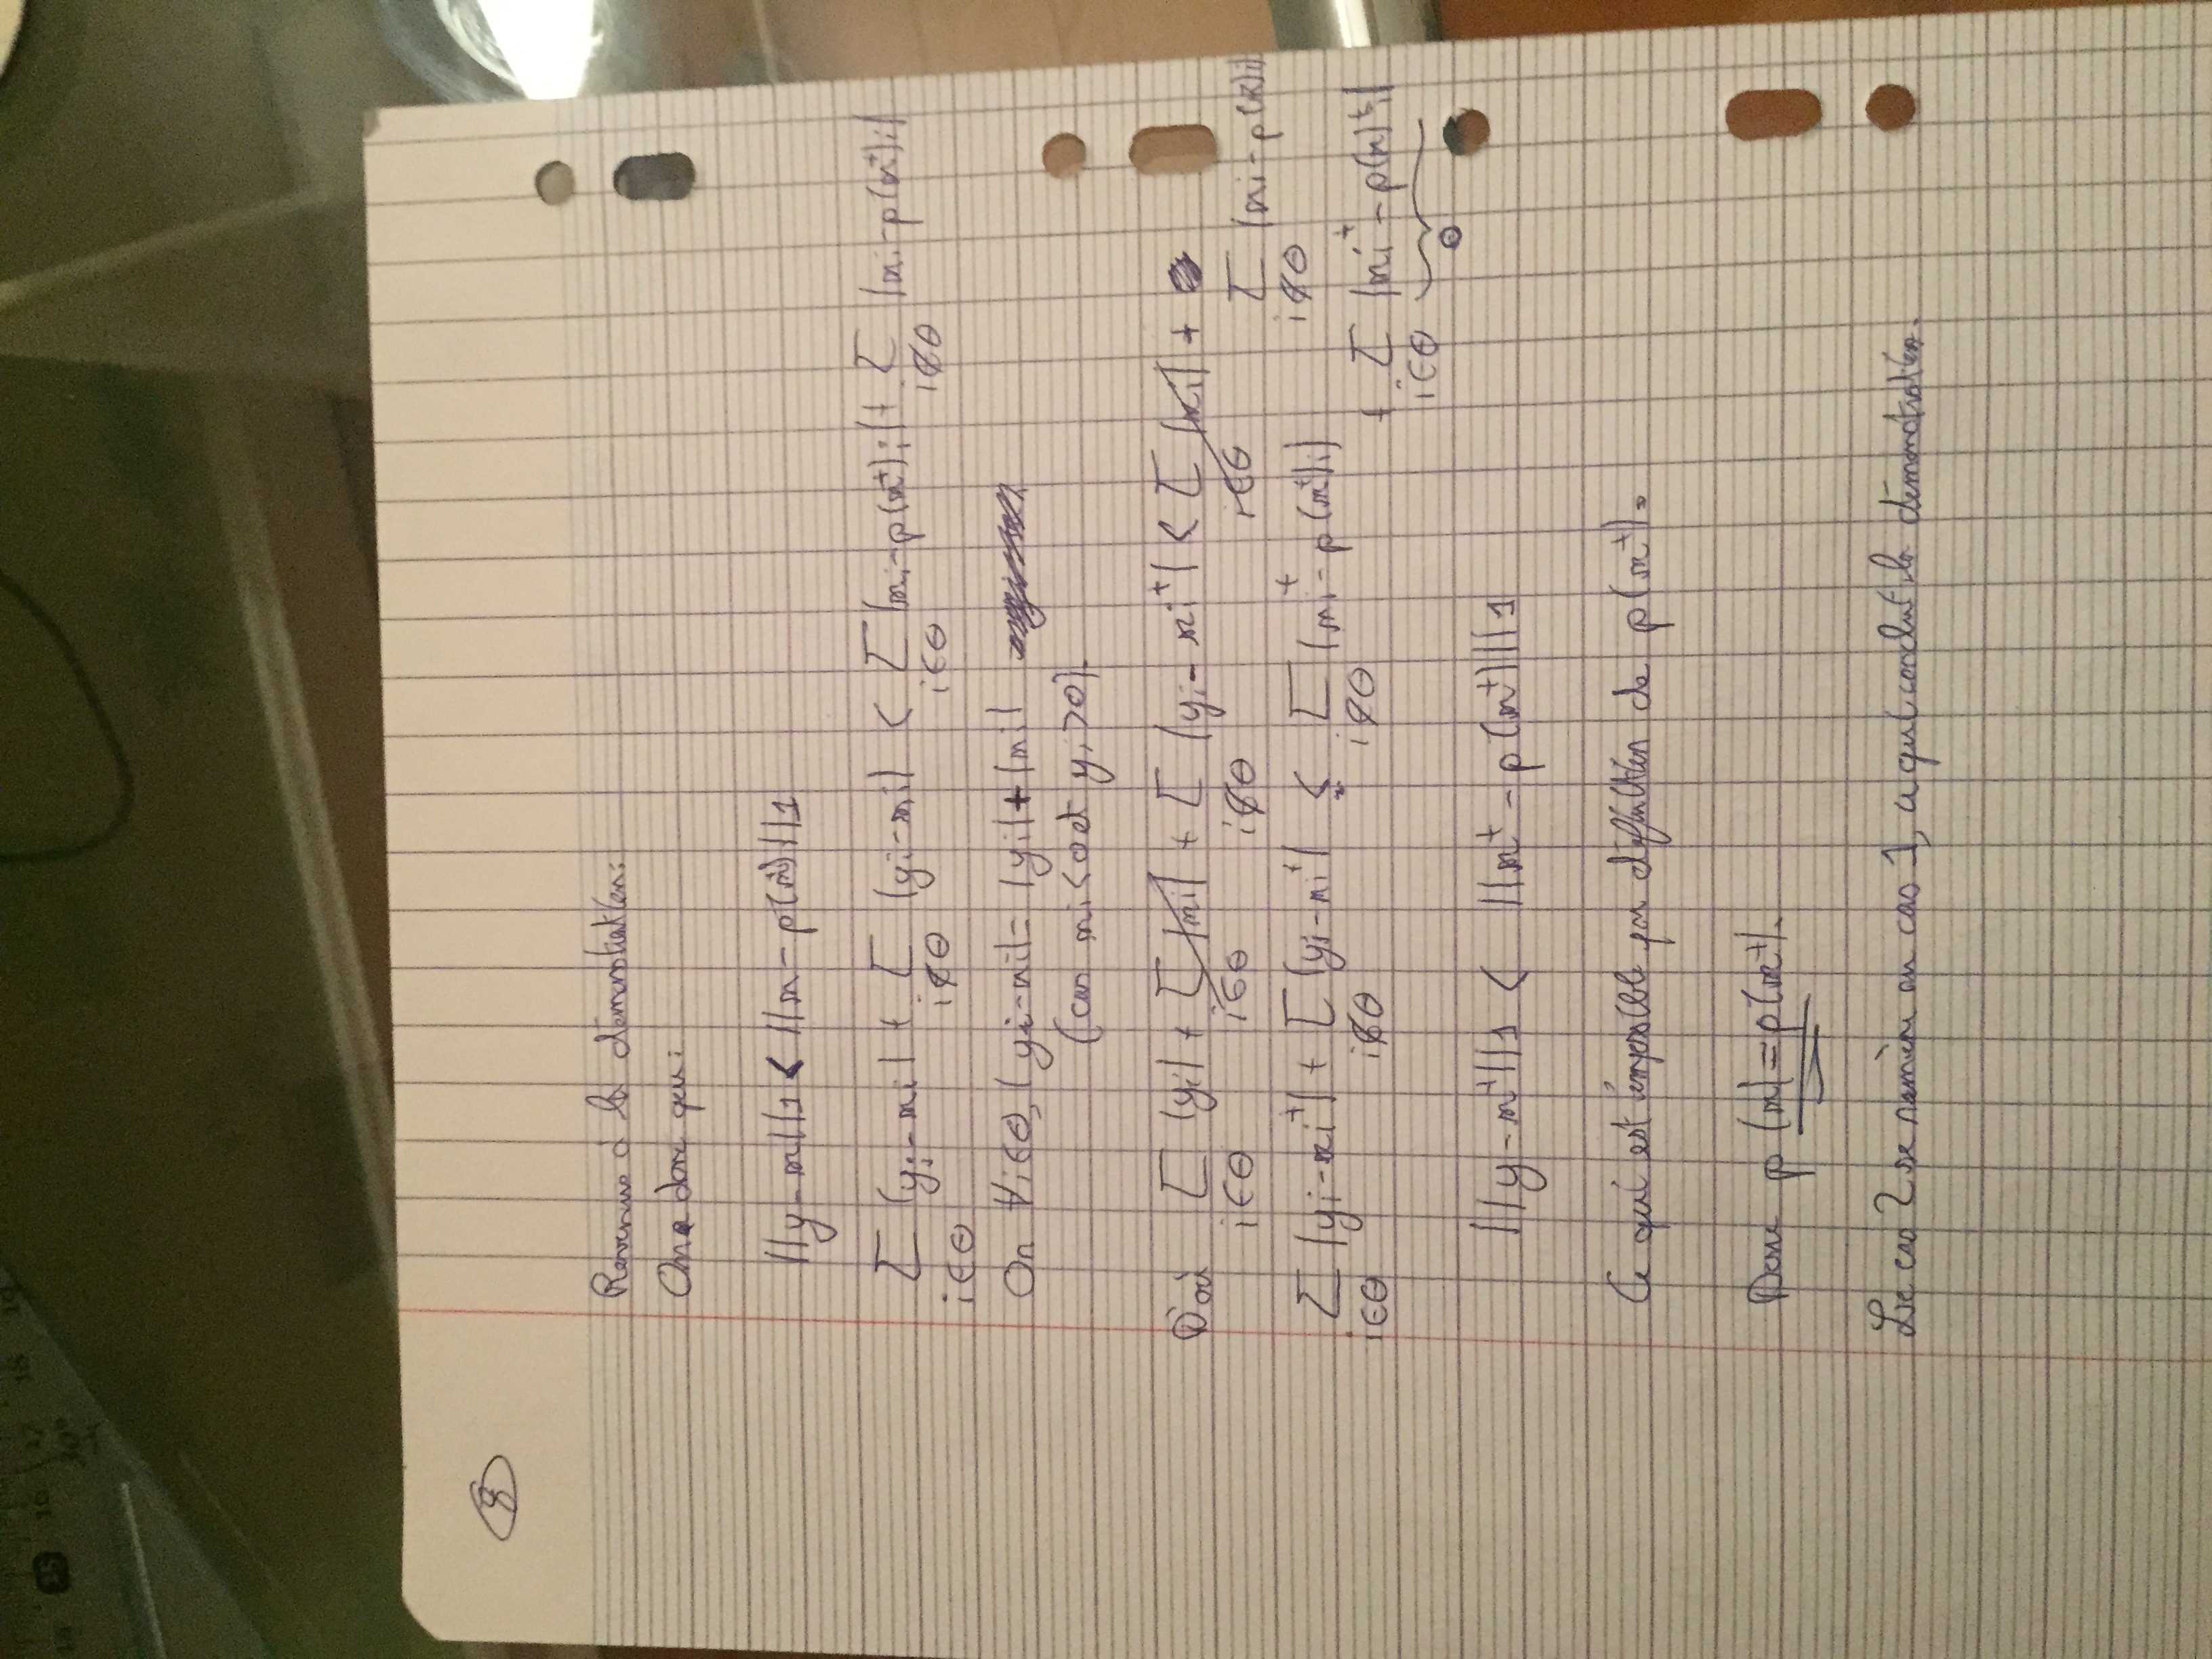 14 15 16 17 18 19
30°
8
Revenons à la démonstration:
On a donc que:
||y-x||1 < ||x-p(x⁺)||1
∑ |yi-xi| + ∑ |yi-xi| < ∑ |xi-p(x⁺)i| + ∑ |xi-p(x⁺)i|
i∈Θ i∉Θ i∈Θ i∉Θ
On ∀i∈Θ, |yi-xi| = |yi|+|xi|
(car xi<0 et yi>0).
D'où ∑ |yi| + ∑ |xi| + ∑ |yi-xi⁺| < ∑ |xi| +
i∈Θ i∈Θ i∉Θ i∈Θ
∑ |xi-p(x)i|
i∉Θ
∑ |yi-xi⁺| + ∑ |yi-xi⁺| < ∑ |xi⁺-p(x⁺)i|
i∈Θ i∉Θ i∉Θ
+ ∑ |xi⁺-p(x)⁺i|
i∈Θ
0
||y-x⁺||1 < ||x⁺-p(x⁺)||1
Ce qui est impossible par définition de p(x⁺).
Donc p(x)=p(x⁺).
Le cas 2 se ramène au cas 1, ce qui conclut la démonstration.